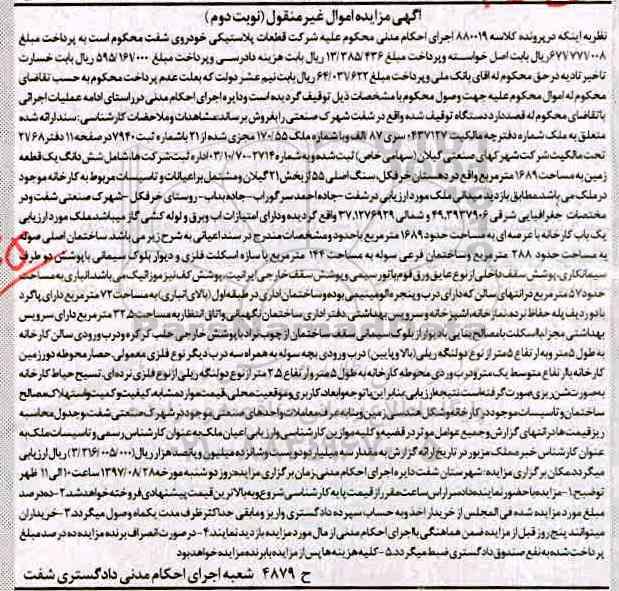 آگهی مزایده اموال غیر منقول (نوبت دوم)
نظر به اینکه در پرونده کلاسه ۸۸۰۰۱۹ اجرای احکام مدنی محکوم علیه شرکت قطعات پلاستیکی خودروی شفت محکوم است به پرداخت مبلغ
۶۷۷/۷۷۱/۰۰۸ ریال بابت اصل خواسته و پرداخت مبلغ ۱۳/۳۸۵/۴۳۶ ریال بابت هزینه دادرسی و پرداخت مبلغ ۵۹۵/۱۶۷/۰۰۰ ریال بابت خسارت
تاخیر تادیه در حق محکوم له آقای بانک ملی و پرداخت مبلغ ۶۴/۰۳۷/۶۲۲ ریال بابت نیم عشر دولت که بعلت عدم پرداخت محکوم به حسب تقاضای
محکوم له اموال محکوم علیه جهت وصول محکوم با مشخصات ذیل توقیف گردیده است و دایره اجرای احکام مدنی در راستای ادامه عملیات اجرائی
با تقاضای محکوم له قصد دارد دستگاه توقیف شده واقع در شفت شهرک صنعتی را بفروش برساند: مشاهدات و ملاحظات کارشناسی: سند ارائه شده
متعلق به ملک شماره دفترچه مالکیت ۰۴۳۷۱۲۷ سری ۸۷ الف و با شماره ملک ۱۷۰/۵۵ مجزی شده از ۲۱ با شماره ثبت ۷۹۴۰ در صفحه ۱۱ دفتر ۲۷۶۸
تحت مالکیت شرکت شهرکهای صنعتی گیلان (سهامی خاص) ثبت شده و به شماره ۲۷۱۴-۰۳/۱۰/۷۰ اداره ثبت شرکت ها، شامل شش دانگ یک قطعه
زمین به مساحت ۱۶۸۹ متر مربع واقع در دهستان خرفکل، سنگ اصلی ۵۵ از بخش ۲۱ گیلان و مشتمل بر اعیانات و تاسیسات مربوط به کارخانه موجود
در ملک می باشد. مطابق بازدید میدانی ملک مورد ارزیابی در شفت - جاده احمد سرگوراب - جاده بداب - روستای خرفکل - شهرک صنعتی شفت و در
مختصات جغرافیایی شرقی ۴۹,۳۹۳۷۹۰۶ و شمالی ۳۷,۱۲۷۶۹۲۹ واقع گردیده و دارای امتیازات آب و برق و لوله کشی گاز میباشد. ملک مورد ارزیابی
یک باب کارخانه با عرصه ای به مساحت حدود ۱۶۸۹ متر مربع با حدود و مشخصات مندرج در سند اعیانی به شرح زیر می باشد. ساختمان اصلی سوله
به مساحت حدود ۲۸۸ متر مربع و ساختمان فرعی سوله به مساحت ۱۴۴ متر مربع با سازه اسکلت فلزی و دیوار بلوک سیمانی با پوشش دو طرف
سیمانکاری، پوشش سقف داخلی از نوع عایق ورق فوم با تور سیمی و پوشش سقف خارجی ایرانیت، پوشش کف نیز موزائیک می باشد. انباری به مساحت
حدود ۵۷ متر مربع در انتهای سالن که دارای درب و پنجره آلومینیمی بوده و ساختمان اداری در طبقه اول (بالای انباری) به مساحت ۷۲ متر مربع دارای پاگرد
با دو ردیف پله حفاظ نرده، نمازخانه، آشپزخانه و سرویس بهداشتی، دفتر اداری ساختمان نگهبانی و اتاق انتظار به مساحت ۳۲,۵ متر مربع دارای سرویس
بهداشتی مجزا با اسکلت با مصالح بنایی با دیوار از بلوک سیمانی سقف ساختمان از چوب نراد با پوشش خارجی حلب کرکره و درب ورودی سالن کارخانه
به طول ۵ متر و به ارتفاع ۵ متر از نوع دولنگه ریلی (بالا و پایین) درب ورودی بچه سوله به همراه سه درب دیگر نوع فلزی معمولی، حصار محوطه دور زمین
کارخانه با ارتفاع متوسط یک متر و درب وردی محوطه کارخانه به طول ۵ متر و ارتفاع ۲,۵ متر از نوع دولنگه ریلی از نوع فلزی نرده ای، تسیح حیاط کارخانه
به صورت شن ریزی صورت گرفته است. نتیجه ارزیابی: بنابراین با توجه و ابعاد کاربری و موقعیت محلی، قیمت موارد مشابه کیفیت و کمیت و استهلاک مصالح
ساختمان و تاسیسات موجود در کارخانه و شکل هندسی زمین و بنا به عرف معاملات واحدهای صنعتی موجود در شهرک صنعتی شفت و جدول محاسبه
ریز قیمتها در انتهای گزارش و جمیع عوامل موثر در قضیه و کلیه موازین کارشناسی و ارزیابی اعیان ملک به عنوان کارشناس رسمی و تاسیسات ملک به
عنوان کارشناس خبره ملک مزبور در تاریخ ارائه گزارش به مقدار سه میلیارد و دویست و شانزده میلیون و پانصد هزار ریال (۳/۲۱۶/۰۰۵/۰۰۰) ریال ارزیابی
میگردد. مکان برگزاری مزایده: شهرستان شفت دایره اجرای احکام مدنی. زمان برگزاری مزایده: روز دوشنبه مورخه ۱۳۹۷/۰۸/۲۸ ساعت ۱۰ الی ۱۱ ظهر
توضیح: ۱- مزایده با حضور نماینده دادسرا راس ساعت مقرر از قیمت پایه کارشناسی شروع و به بالاترین قیمت پیشنهادی فروخته خواهد شد. ۲- ده درصد
مبلغ مورد مزایده شده فی المجلس از خریدار اخذ و به حساب سپرده دادگستری واریز و مابقی حداکثر ظرف مدت یکماه وصول میگردد ۳- خریداران
میتوانند پنج روز قبل از مزایده ضمن هماهنگی با اجرای احکام مدنی از مال مورد مزایده بازدید نمایند ۴- در صورت انصراف برنده مزایده ده درصد مبلغ
پرداخت شده به نفع صندوق دادگستری ضبط میگردد. ۵- کلیه هزینه ها پس از مزایده با برنده مزایده خواهد بود
ح ۴۸۷۹ شعبه اجرای احکام مدنی دادگستری شفت